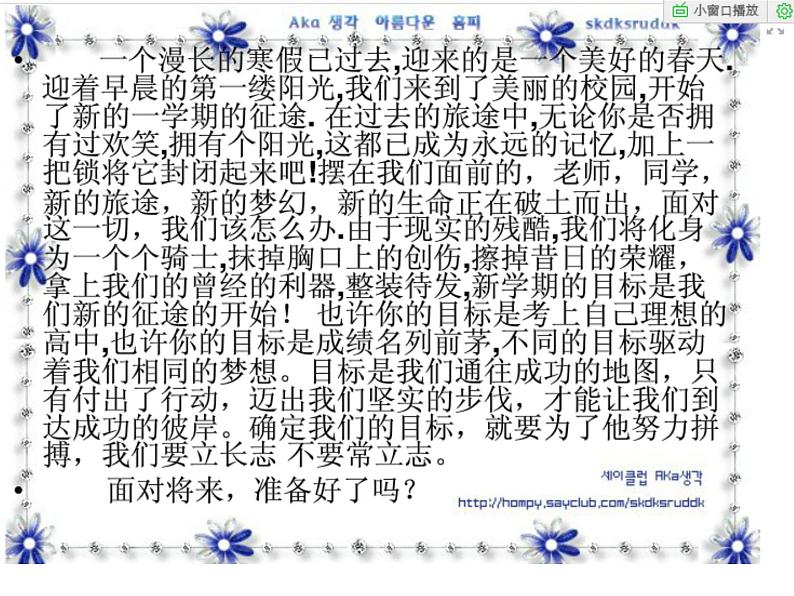 Aka 생각 아름다운 홈피 skdksruddk
小窗口播放
• 一个漫长的寒假已过去,迎来的是一个美好的春天.
迎着早晨的第一缕阳光,我们来到了美丽的校园,开始
了新的一学期的征途. 在过去的旅途中,无论你是否拥
有过欢笑,拥有个阳光,这都已成为永远的记忆,加上一
把锁将它封闭起来吧!摆在我们面前的，老师，同学，
新的旅途，新的梦幻，新的生命正在破土而出，面对
这一切，我们该怎么办.由于现实的残酷,我们将化身
为一个个骑士,抹掉胸口上的创伤,擦掉昔日的荣耀，
拿上我们的曾经的利器,整装待发,新学期的目标是我
们新的征途的开始！ 也许你的目标是考上自己理想的
高中,也许你的目标是成绩名列前茅,不同的目标驱动
着我们相同的梦想。目标是我们通往成功的地图，只
有付出了行动，迈出我们坚实的步伐，才能让我们到
达成功的彼岸。确定我们的目标，就要为了他努力拼
搏，我们要立长志 不要常立志。
• 面对将来，准备好了吗？
세이클럽 AKa생각
http://hompy.sayclub.com/skdksruddk